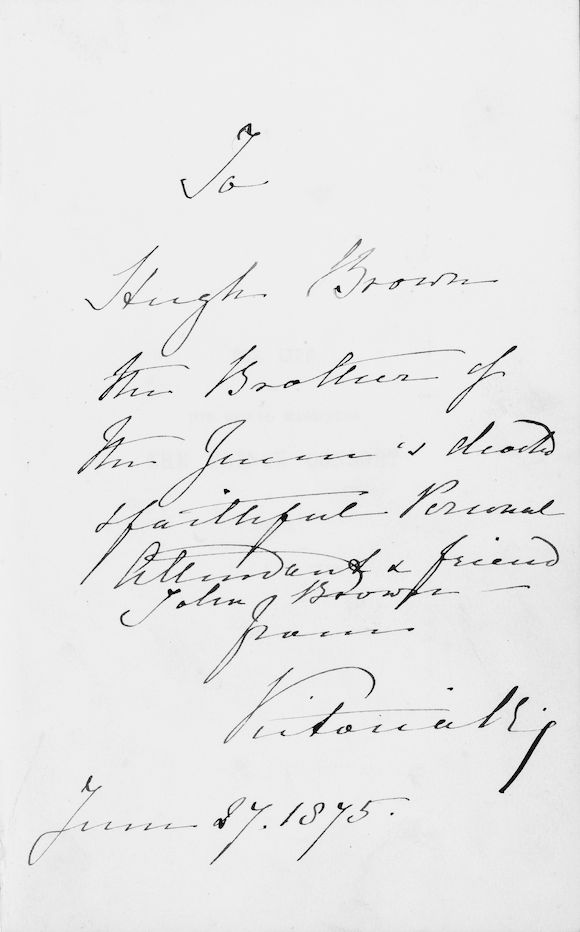 To
Hugh Brown
the Brother of
the Queen's devoted
& faithful Personal
Attendant & friend
John Brown —
from
Victoria R
June 27. 1875.